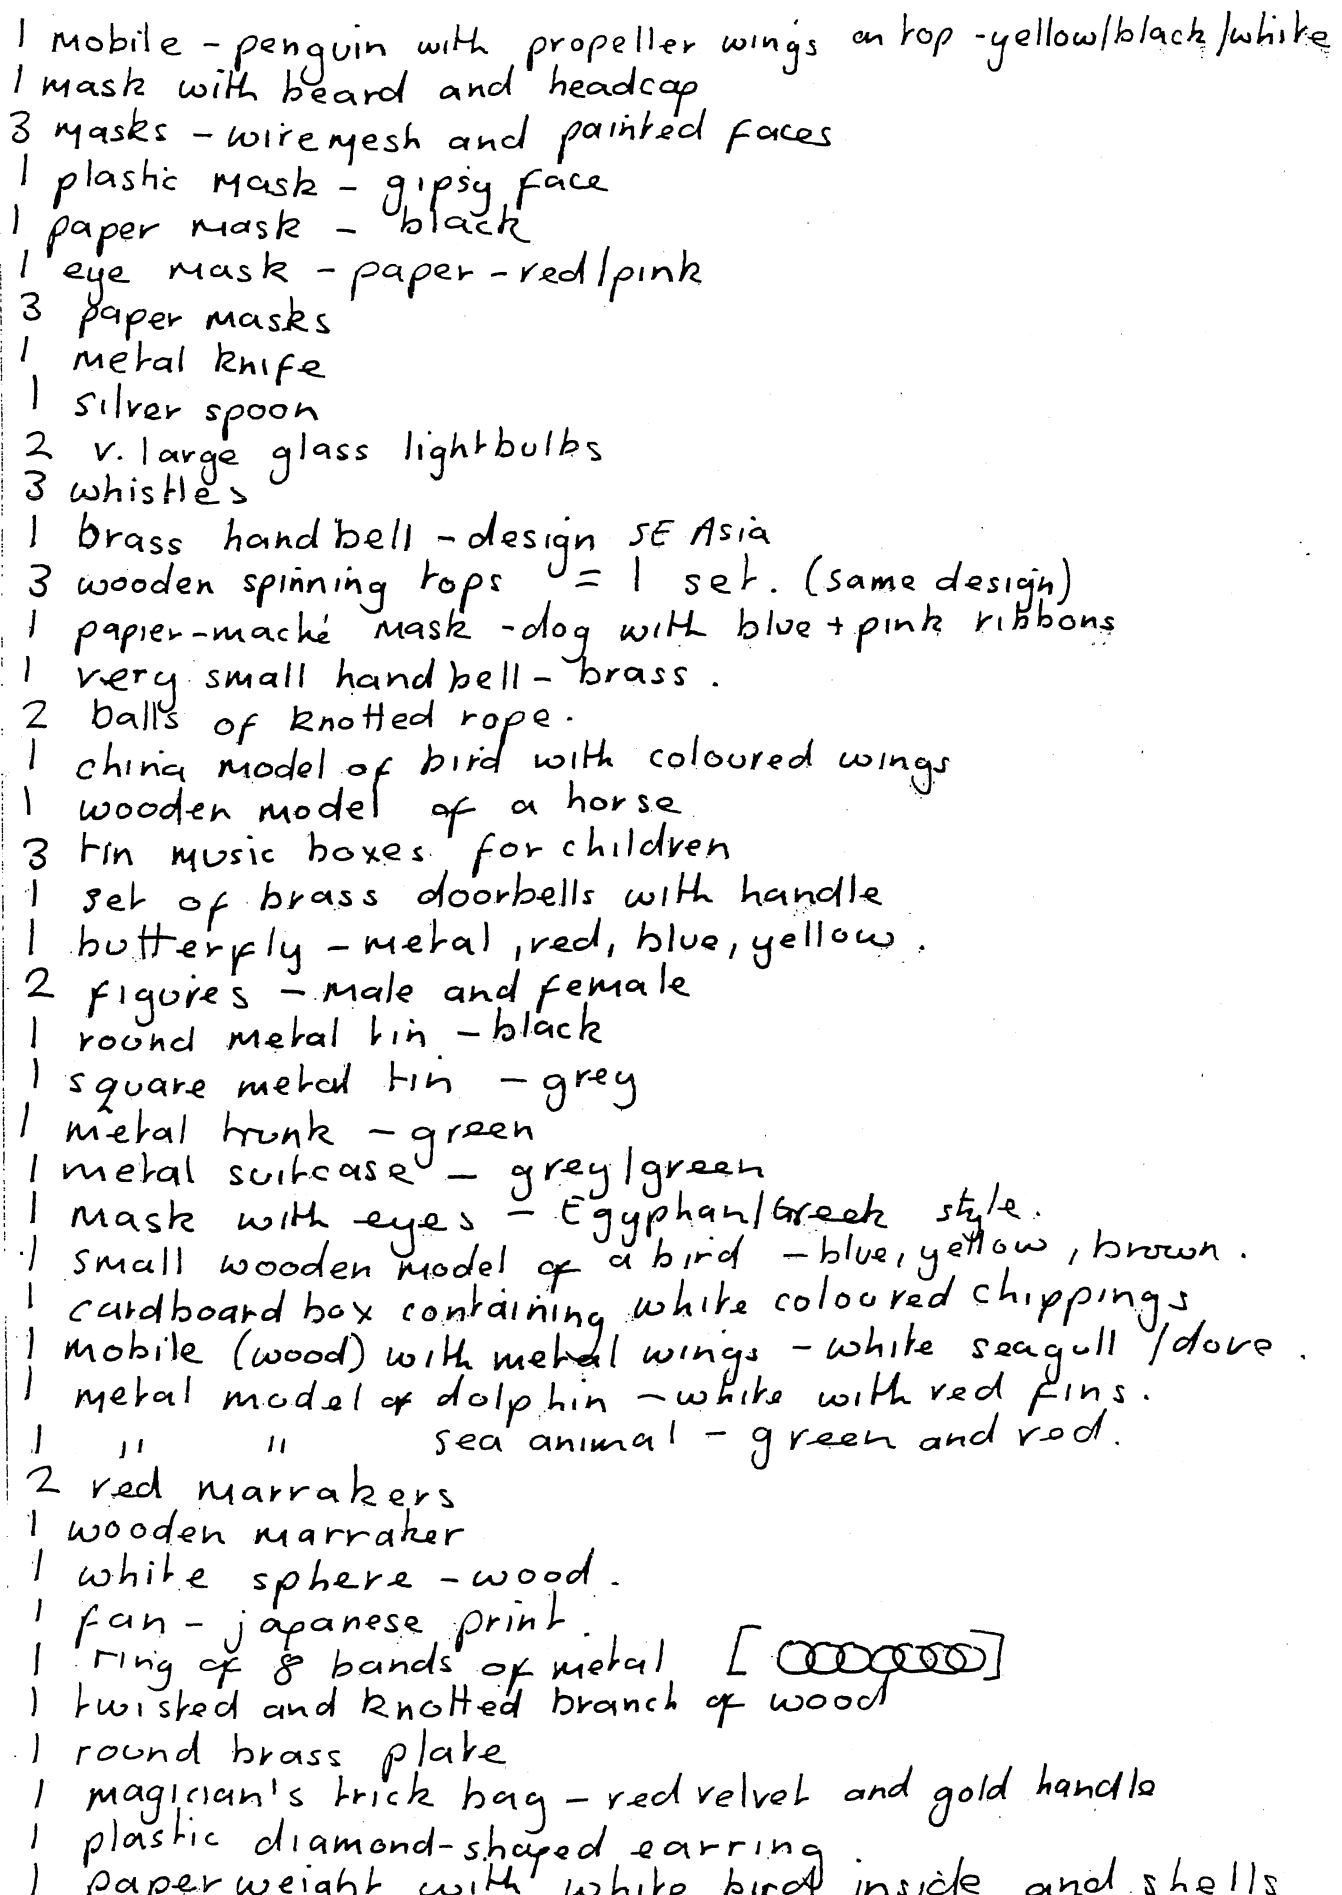 1 mobile - penguin with propeller wings on top - yellow/black/white
1 mask with beard and headcap
3 masks - wiremesh and painted faces
1 plastic mask - gipsy face
1 paper mask - black
1 eye mask - paper - red/pink
3 paper masks
1 metal knife
1 silver spoon
2 v. large glass lightbulbs
3 whistles
1 brass handbell - design SE Asia
3 wooden spinning tops = 1 set. (same design)
1 papier-maché mask - dog with blue + pink ribbons
1 very small handbell - brass.
2 balls of knotted rope.
1 china model of bird with coloured wings
1 wooden model of a horse
3 tin music boxes for children
1 set of brass doorbells with handle
1 butterfly - metal, red, blue, yellow.
2 figures - male and female
1 round metal tin - black
1 square metal tin - grey
1 metal trunk - green
1 metal suitcase - grey/green
1 mask with eyes - Egyptian/Greek style.
1 small wooden model of a bird - blue, yellow, brown.
1 cardboard box containing white coloured chippings
1 mobile (wood) with metal wings - white seagull/dove.
1 metal model of dolphin - white with red fins.
1 " " sea animal - green and red.
2 red marrakers
1 wooden marraker
1 white sphere - wood.
1 fan - japanese print.
1 ring of 8 bands of metal
1 twisted and knotted branch of wood
1 round brass plate
1 magician's trick bag - red velvet and gold handle
1 plastic diamond-shaped earring
1 paperweight with white bird inside and shells